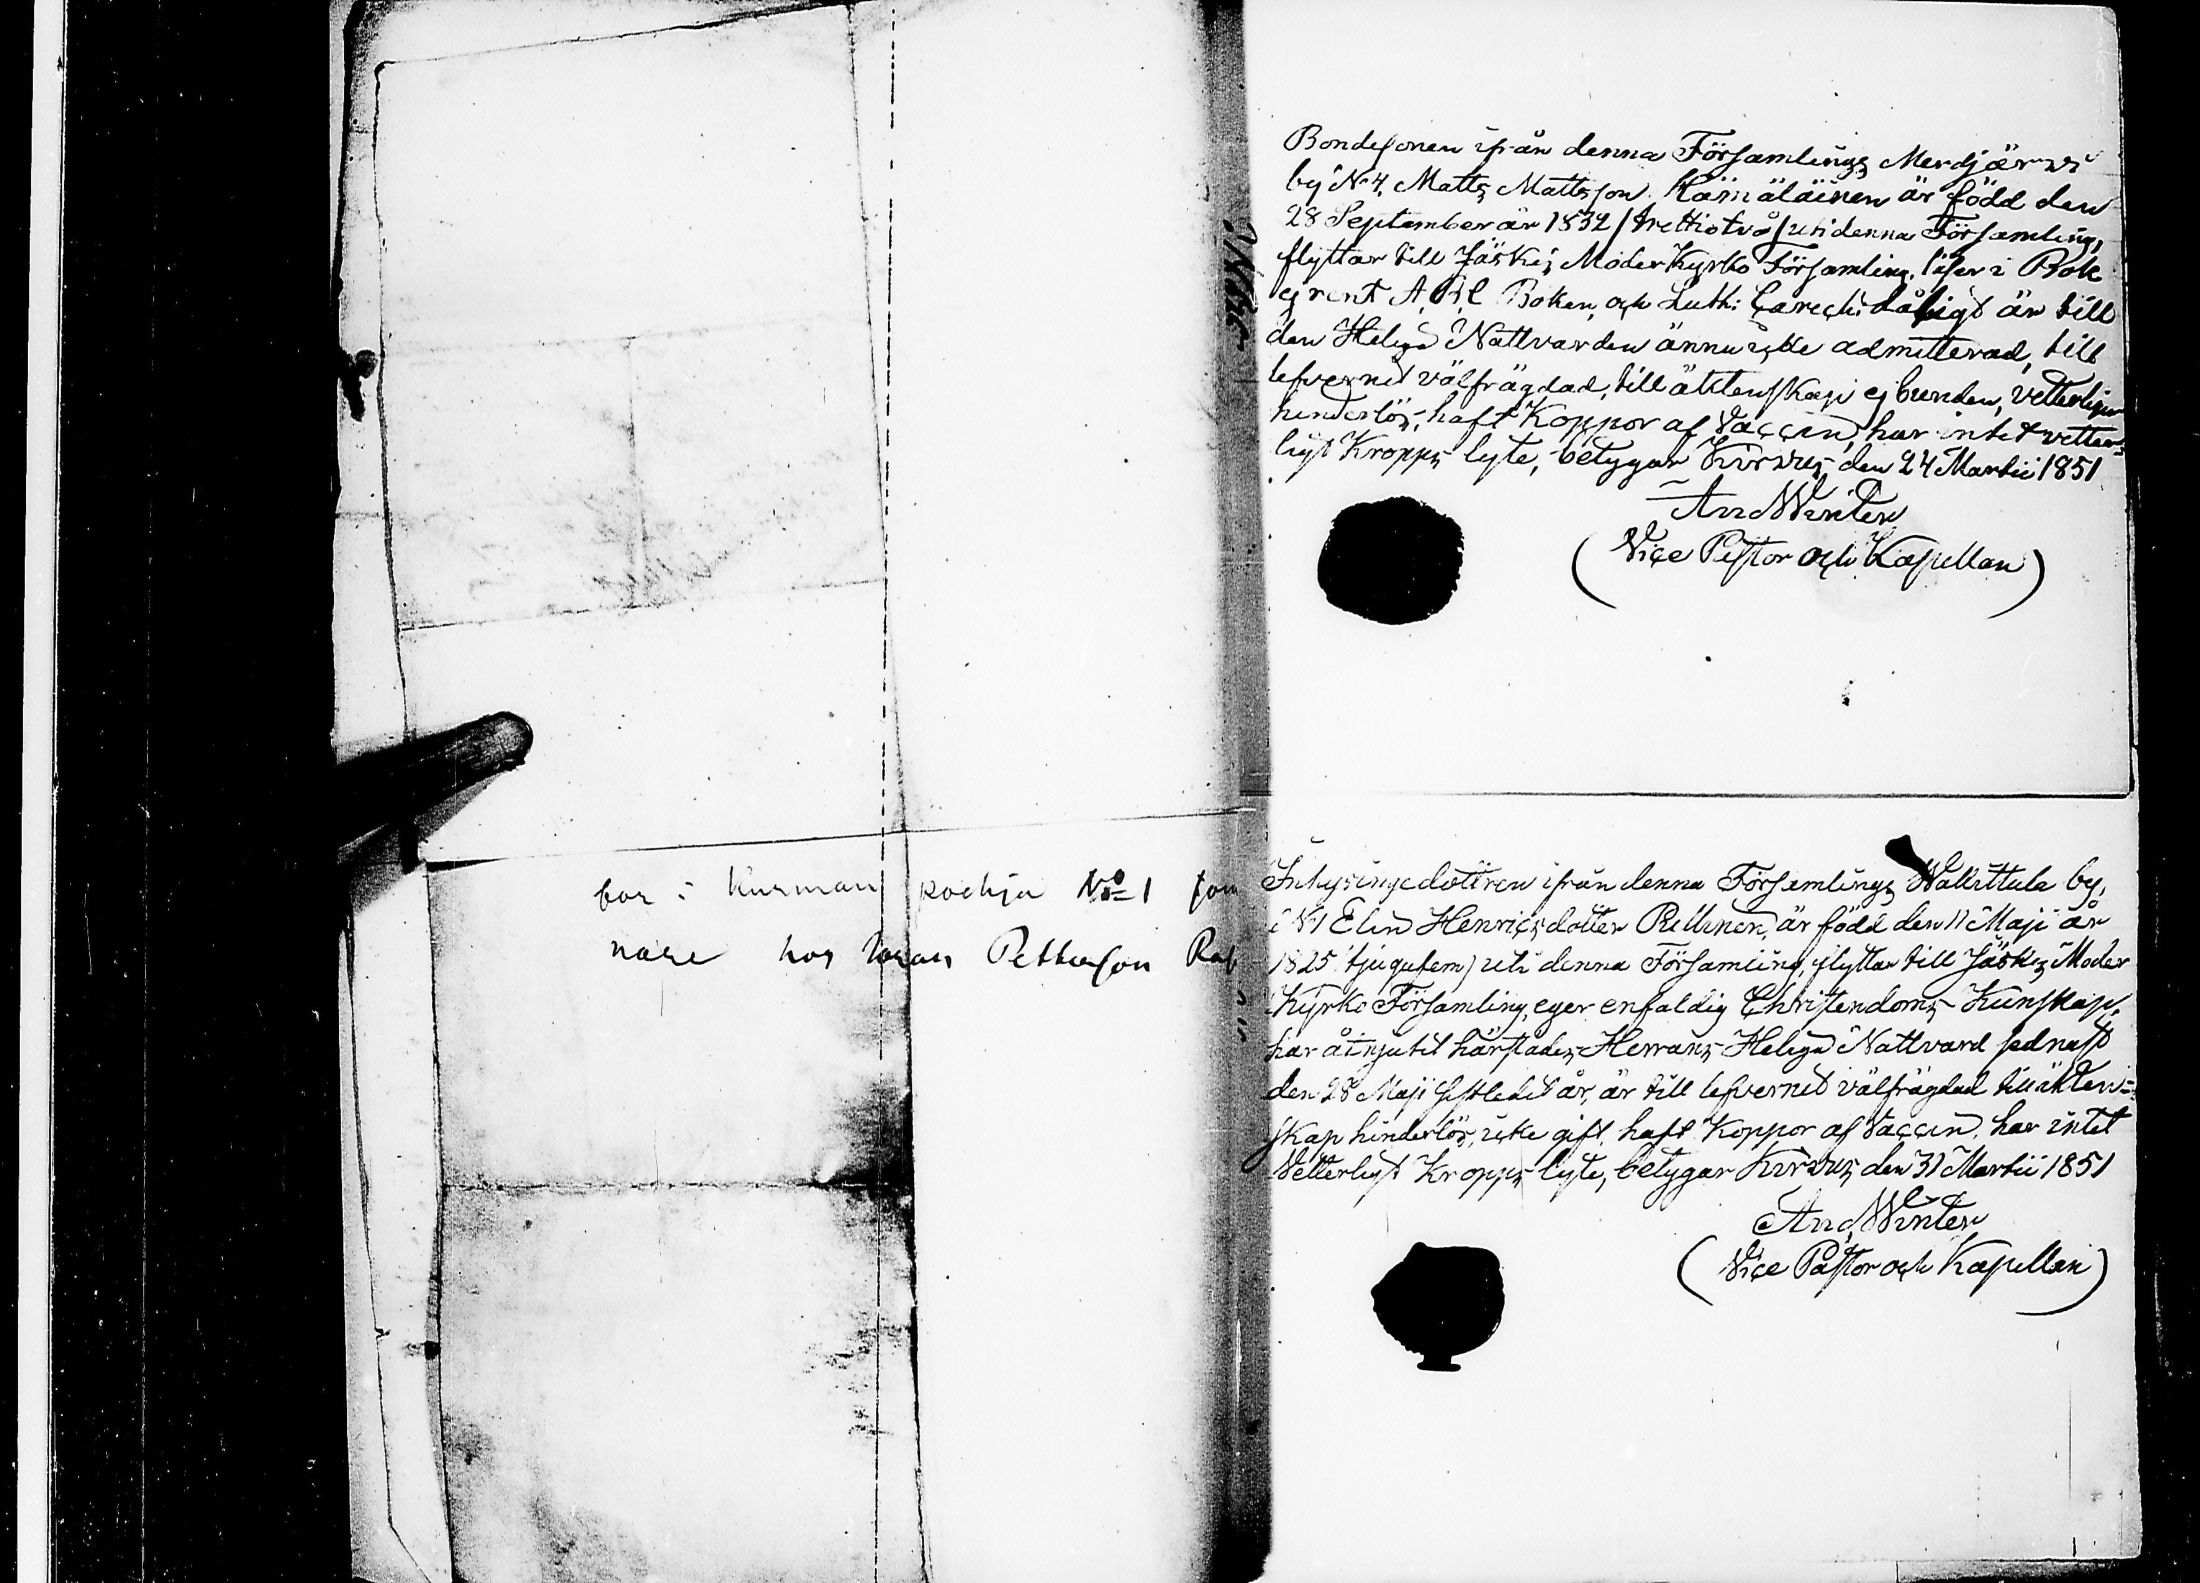 bor i Kurman pochja No 1 som
nare hos Joran Pettersson Rat
Bondesonen ifrån denna Församlings Merdjärvi
by N 4. Matts Mattsson Hämäläinen är född den
28 September år 1832 / trettiotvå / uti denna Församling,
flyttar till Jäskis Moder Kyrko Församling. läser i Bok
ej rent A, B, C Boken, och Luth: Catech: dåligt är till
den Heliga Nattvarden ännu icke admitterad, till
lefvernet välfrägdad, till äktenskap ej bunden, vetterligen
hinderlös, haft Koppor af Vaccin, har intet vetter=
ligt Kropps lyte, betygar Kirvus den 24 Martii 1851
And Winter
(Vice Pastor och Kapellan)
Inhysingedottren ifrån denna Församlings Wallittula by,
N 1 Elin Henricsdotter Pullinen, är född den 11 Maji år
1825 (tjugufem) uti denna Församling, flyttar till Jäskis Moder
Kyrko Församling, eger enfaldig Christendoms Kunskap,
har åtnjutit härstädes Herrans Heliga Nattvard sednast
den 28 Maji sistledit år, är till lefvernet välfrägdad till äkten=
skap hinderlös, icke gift, haft Koppor af Vaccin, har intet
Vetterligt Kropps lyte, betygar Kirvus den 31 Martii 1851
And Winter
(Vice Pastor och Kapellan)